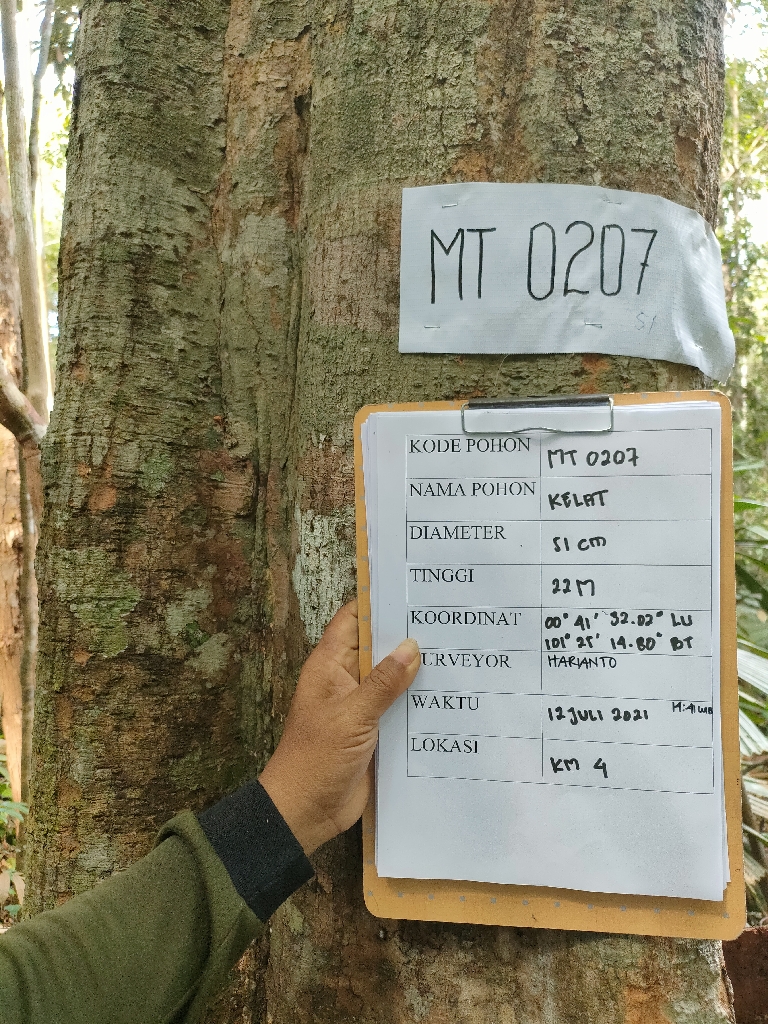 MT 0207
51
KODE POHON MT 0207
NAMA POHON KELAT
DIAMETER 51 cm
TINGGI 22 M
KOORDINAT 00° 41' 32.02" LU
101° 25' 14.80" BT
SURVEYOR HARIANTO
WAKTU 12 JULI 2021
LOKASI KM 4